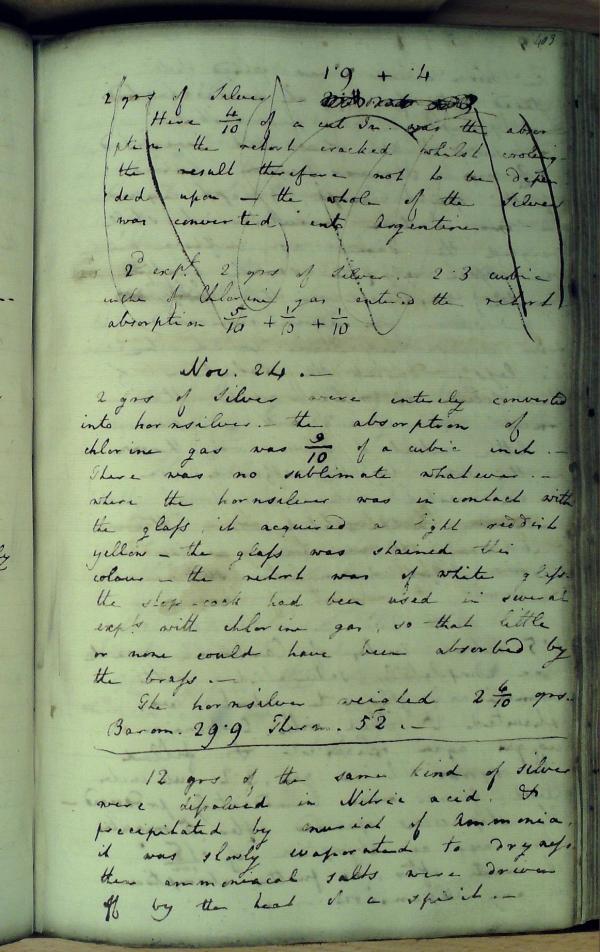 403
1·9 + ·4
2 grs of Silver
Here 4/10 of a cub In. was the absor
ption, the retort cracked whilst cooling
the result therefore not to be depen
ded upon — the whole of the Silver
was converted into Argentine
2d expt. 2 grs of Silver. 2·3 cubic
inche of Chlorine gas entered the retort
absorption 5/10 + 1/10 + 1/10
Nov. 24. —
2 grs of Silver were entirely converted
into hornsilver. the absorption of
chlorine gas was 9/10 of a cubic inch. —
There was no sublimate whatever. —
where the hornsilver was in contact with
the glaſs, it acquired a light reddish
yellow — the glaſs was stained this
colour — the retort was of white glaſs.
the stop-cock had been used in several
expts with chlorine gas, so that little
or none could have been absorbed by
the braſs. —
The hornsilver weighed 2 6/10 grs.
Barom. 29·9 Therm. 52. —
12 grs of the same kind of silver
were diſsolved in Nitric acid. &
precipitated by muriat of Ammonia,
it was slowly evaporated to dryneſs
the ammoniacal salts were driven
off by the heat of a spirit. —